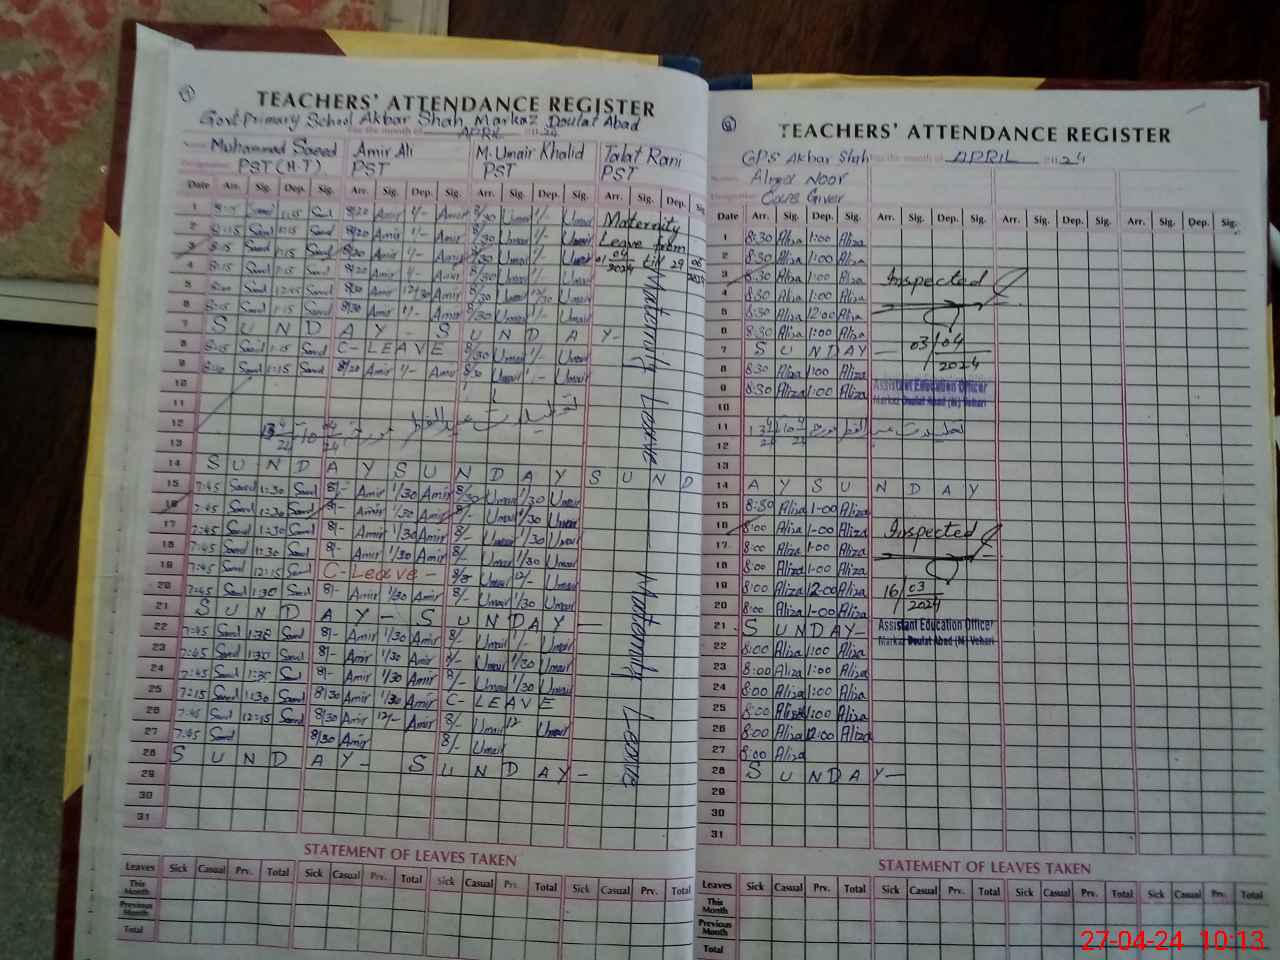 TEACHERS' ATTENDANCE REGISTER
Govt Primary School Akbar Shah Markaz Doulat Abad
For the month of APRIL 24
Muhammad Saeed Amir Ali M. Umair Khalid Talat Rani
PST (H.T) PST PST PST
Date Arr. Sig. Dep. Sig. Arr. Sig. Dep. Sig. Arr. Sig. Dep. Sig. Arr. Sig. Dep. Sig.
Maternity
Leave from
01 04 2024 till 29 06 2024
Maternity Leave
Maternity Leave
1 8:15 1:15 8/20 Amir 1/- Amir 8/30 Umair 1/- Umair
2 8:15 1:15 8/20 Amir 1/- Amir 8/30 Umair 1/- Umair
3 8:15 1:15 8/20 Amir 1/- Amir 8/30 Umair 1/- Umair
4 8:15 1:15 8/20 Amir 1/- Amir 8/30 Umair 1/- Umair
5 Amir 12/30 Amir 8/30 Umair 12/30 Umair
6 8:15 1:15 8/30 Amir 1/- Amir 8/30 Umair 1/- Umair
7 SUNDAY - SUNDAY-
8 8:15 1:15 C-LEAVE 8/30 Umair 1/- Umair
9 1:15 8/20 Amir 1/- Amir 8/30 Umair 1/- Umair
10
11
12
13
14 SUNDAY SUNDAY SUND
15 7:45 1:30 8/- Amir 1/30 Amir 8/30 Umair 1/30 Umair
16 7:45 1:30 8/- Amir 1/30 Amir 8/- Umair 1/30 Umair
17 7:45 1:30 8/- Amir 1/30 Amir 8/- Umair 1/30 Umair
18 7:45 1:30 8/- Amir 1/30 Amir 8/- Umair 1/30 Umair
19 7:45 12:15 C-Leave - Umair 12/- Umair
20 7:45 1:30 8/- Amir 1/30 Amir 8/- Umair 1/30 Umair
21 SUNDAY - SUNDAY -
22 7:45 1:30 8/- Amir 1/30 Amir 8/- Umair 1/- Umair
23 7:45 1:30 8/- Amir 1/30 Amir 8/- Umair 1/30 Umair
24 7:45 8/- Amir 1/30 Amir 8/- Umair 1/30 Umair
25 7:15 1:30 8/30 Amir 1/30 Amir C-LEAVE
26 7:45 12:15 8/30 Amir 12/- Amir 8/- Umair 12 Umair
27 7:45 8/30 Amir 8/- Umair
28 SUNDAY - SUNDAY -
29
30
31
STATEMENT OF LEAVES TAKEN
Leaves Sick Casual Prv. Total Sick Casual Prv. Total Sick Casual Prv. Total Sick Casual Prv. Total
This Month
Previous Month
Total
TEACHERS' ATTENDANCE REGISTER
GPS Akbar Shah For the month of APRIL 24
Noor
Giver
Date Arr. Sig. Dep. Sig. Arr. Sig. Dep. Sig. Arr. Sig. Dep. Sig. Arr. Sig. Dep. Sig.
1 8:30 Aliza 1:00 Aliza
2 8:30 Aliza 1:00 Aliza
3 8:30 Aliza 1:00 Aliza Inspected
4 8:30 Aliza 1:00 Aliza
5 8:30 Aliza 12:00 Aliza
6 8:30 Aliza 1:00 Aliza 03/04
7 SUNDAY - 2024
8 8:30 Aliza 1:00 Aliza
9 8:30 Aliza 1:00 Aliza Assistant Education Officer
Markaz Doulat Abad (M) Vehari
10
11
12
13
14 AY SUNDAY
15 8:30 Aliza 1-00 Aliza
16 8:00 Aliza 1-00 Aliza Inspected
17 8:00 Aliza 1-00 Aliza
18 8:00 Aliza 1-00 Aliza
19 8:00 Aliza 12-00 Aliza 16/03
20 8:00 Aliza 1-00 Aliza 2024
21 SUNDAY- Assistant Education Officer
Markaz Doulat Abad (M) Vehari
22 8:00 Aliza 1:00 Aliza
23 8:00 Aliza 1:00 Aliza
24 8:00 Aliza 1:00 Aliza
25 8:00 Aliza 1:00 Aliza
26 8:00 Aliza 12:00 Aliza
27 8:00 Aliza
28 SUNDAY-
29
30
31
STATEMENT OF LEAVES TAKEN
Leaves Sick Casual Prv. Total Sick Casual Prv. Total Sick Casual Prv. Total Sick Casual Prv. Total
This Month
Previous Month
Total
27-04-24 10:13